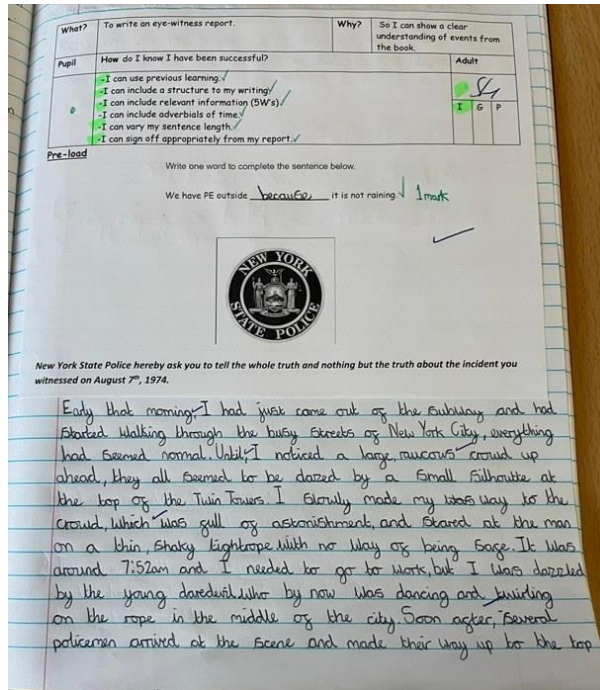 What? To write an eye-witness report. Why? So I can show a clear
understanding of events from
the book.
Pupil How do I know I have been successful? Adult
-I can use previous learning.
-I can include a structure to my writing
-I can include relevant information (5W's)
-I can include adverbials of time.
-I can vary my sentence length.
-I can sign off appropriately from my report.
I G P
Pre-load
Write one word to complete the sentence below.
We have PE outside because it is not raining. 1 mark
NEW YORK
STATE POLICE
New York State Police hereby ask you to tell the whole truth and nothing but the truth about the incident you
witnessed on August 7th, 1974.
Early that morning, I had just come out of the subway and had
started walking through the busy streets of New York City, everything
had seemed normal. Until, I noticed a large, raucous crowd up
ahead, they all seemed to be dazed by a small silhoutte at
the top of the Twin Towers. I slowly made my way to the
crowd, which was full of astonishment, and stared at the man
on a thin, shaky tightrope with no way of being safe. It was
around 7:52am and I needed to go to work, but I was dazzled
by the young daredevil who by now was dancing and twirling
on the rope in the middle of the city. Soon after, several
policemen arrived at the scene and made their way up to the top